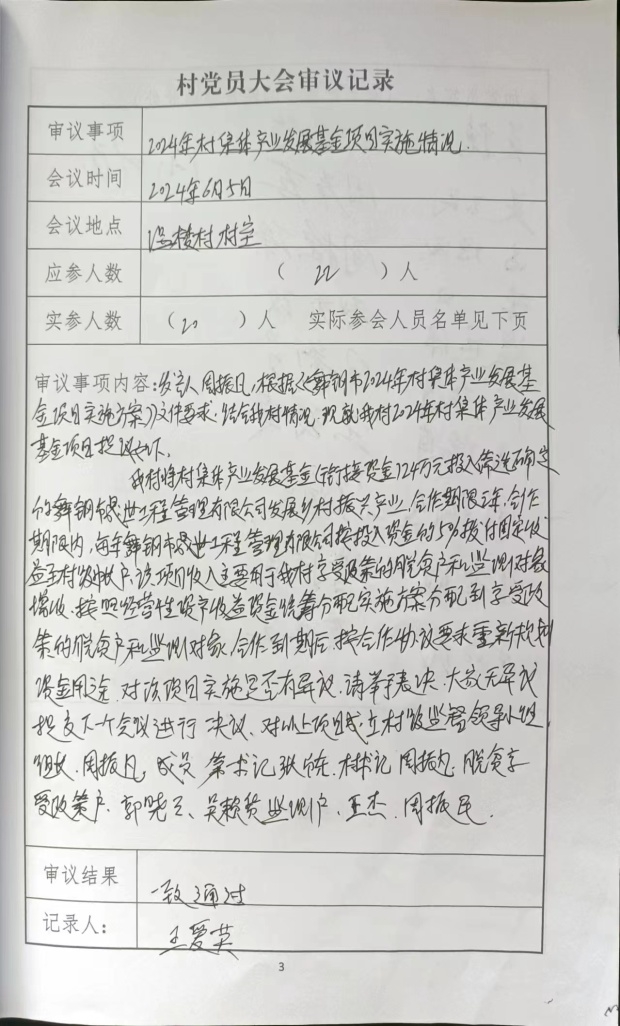 村党员大会审议记录
审议事项 2024年村集体产业发展基金项目实施情况.
会议时间 2024年6月5日
会议地点 楼村村室
应参人数 （22）人
实参人数 （20）人 实际参会人员名单见下页
审议事项内容:发言人周振凡,根据《舞钢市2024年村集体产业发展基
金项目实施方案》文件要求.结合我村情况.现就我村2024年村集体产业发展
基金项目提议如下.
我村将村集体产业发展基金(衔接资金)24万元投入筛选确定
的舞钢市世工程管理有限公司发展乡村振兴产业,合作期限三年,合作
期限内,每年舞钢市世工程管理有限公司按投入资金的5%拨付固定收
益至村账户.该项收入主要用于我村享受政策的脱贫户和监测对象
增收.按照经营性资产收益资金统筹分配实施方案分配到享受政
策的脱贫户和监测对象.合作到期后.按合作协议要求重新规划
资金用途.对该项目实施是否有异议.请举手表决.大家无异议
提交下一个会议进行决议.对以上项目成立村级监督领导小组.
组长.周振凡,成员 第书记张.村书记周振凡.脱贫享
受政策户.郭、吴监测户、王杰.周振民.
审议结果 一致通过
记录人: 王爱英
3